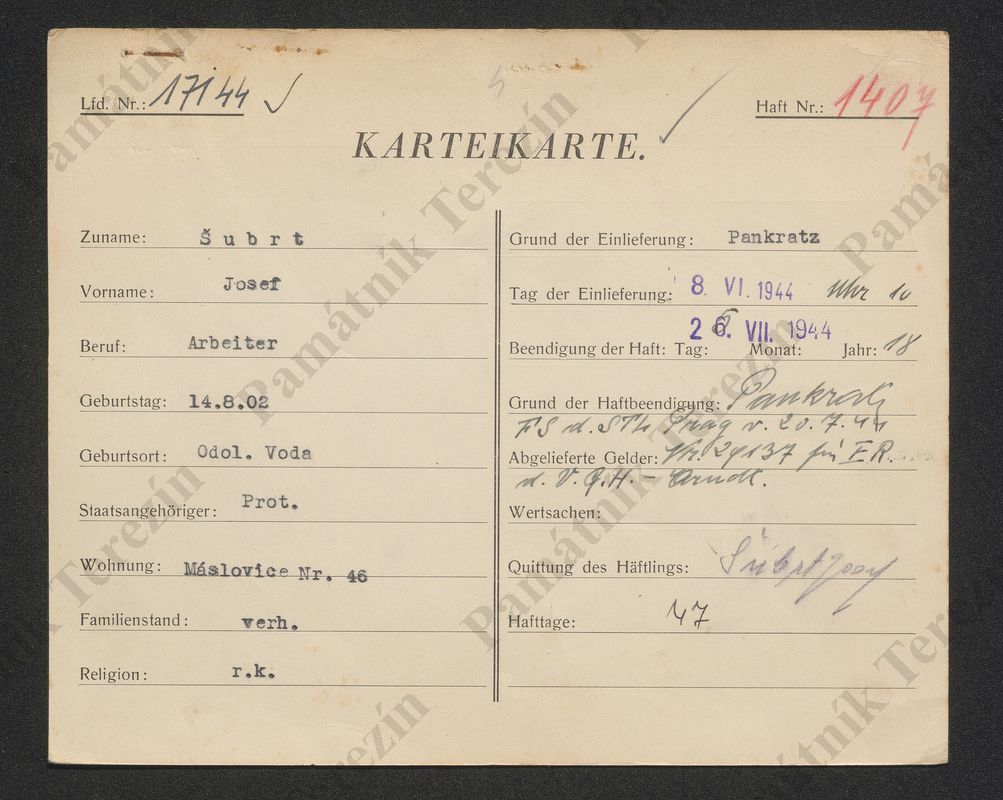 Lfd. Nr.: 17144
Haft Nr.: 1407
KARTEIKARTE.
Zuname: Šubrt
Vorname: Josef
Beruf: Arbeiter
Geburtstag: 14.8.02
Geburtsort: Odol. Voda
Staatsangehöriger: Prot.
Wohnung: Máslovice Nr. 46
Familienstand: verh.
Religion: r.k.
Grund der Einlieferung: Pankratz
Tag der Einlieferung: 8. VI. 1944 Uhr 10
26. VII. 1944
Beendigung der Haft: Tag: Monat: Jahr: 18
Grund der Haftbeendigung: Pankratz
FS d. STL Prag v. 20.7.44
Abgelieferte Gelder: Nr. 29137 für E.R.
d. V.G.H. -
Wertsachen:
Quittung des Häftlings: Šubrt Josef
Hafttage: 47
Památník Terezín
Památník Terezín
Památník Terezín
Památník Terezín